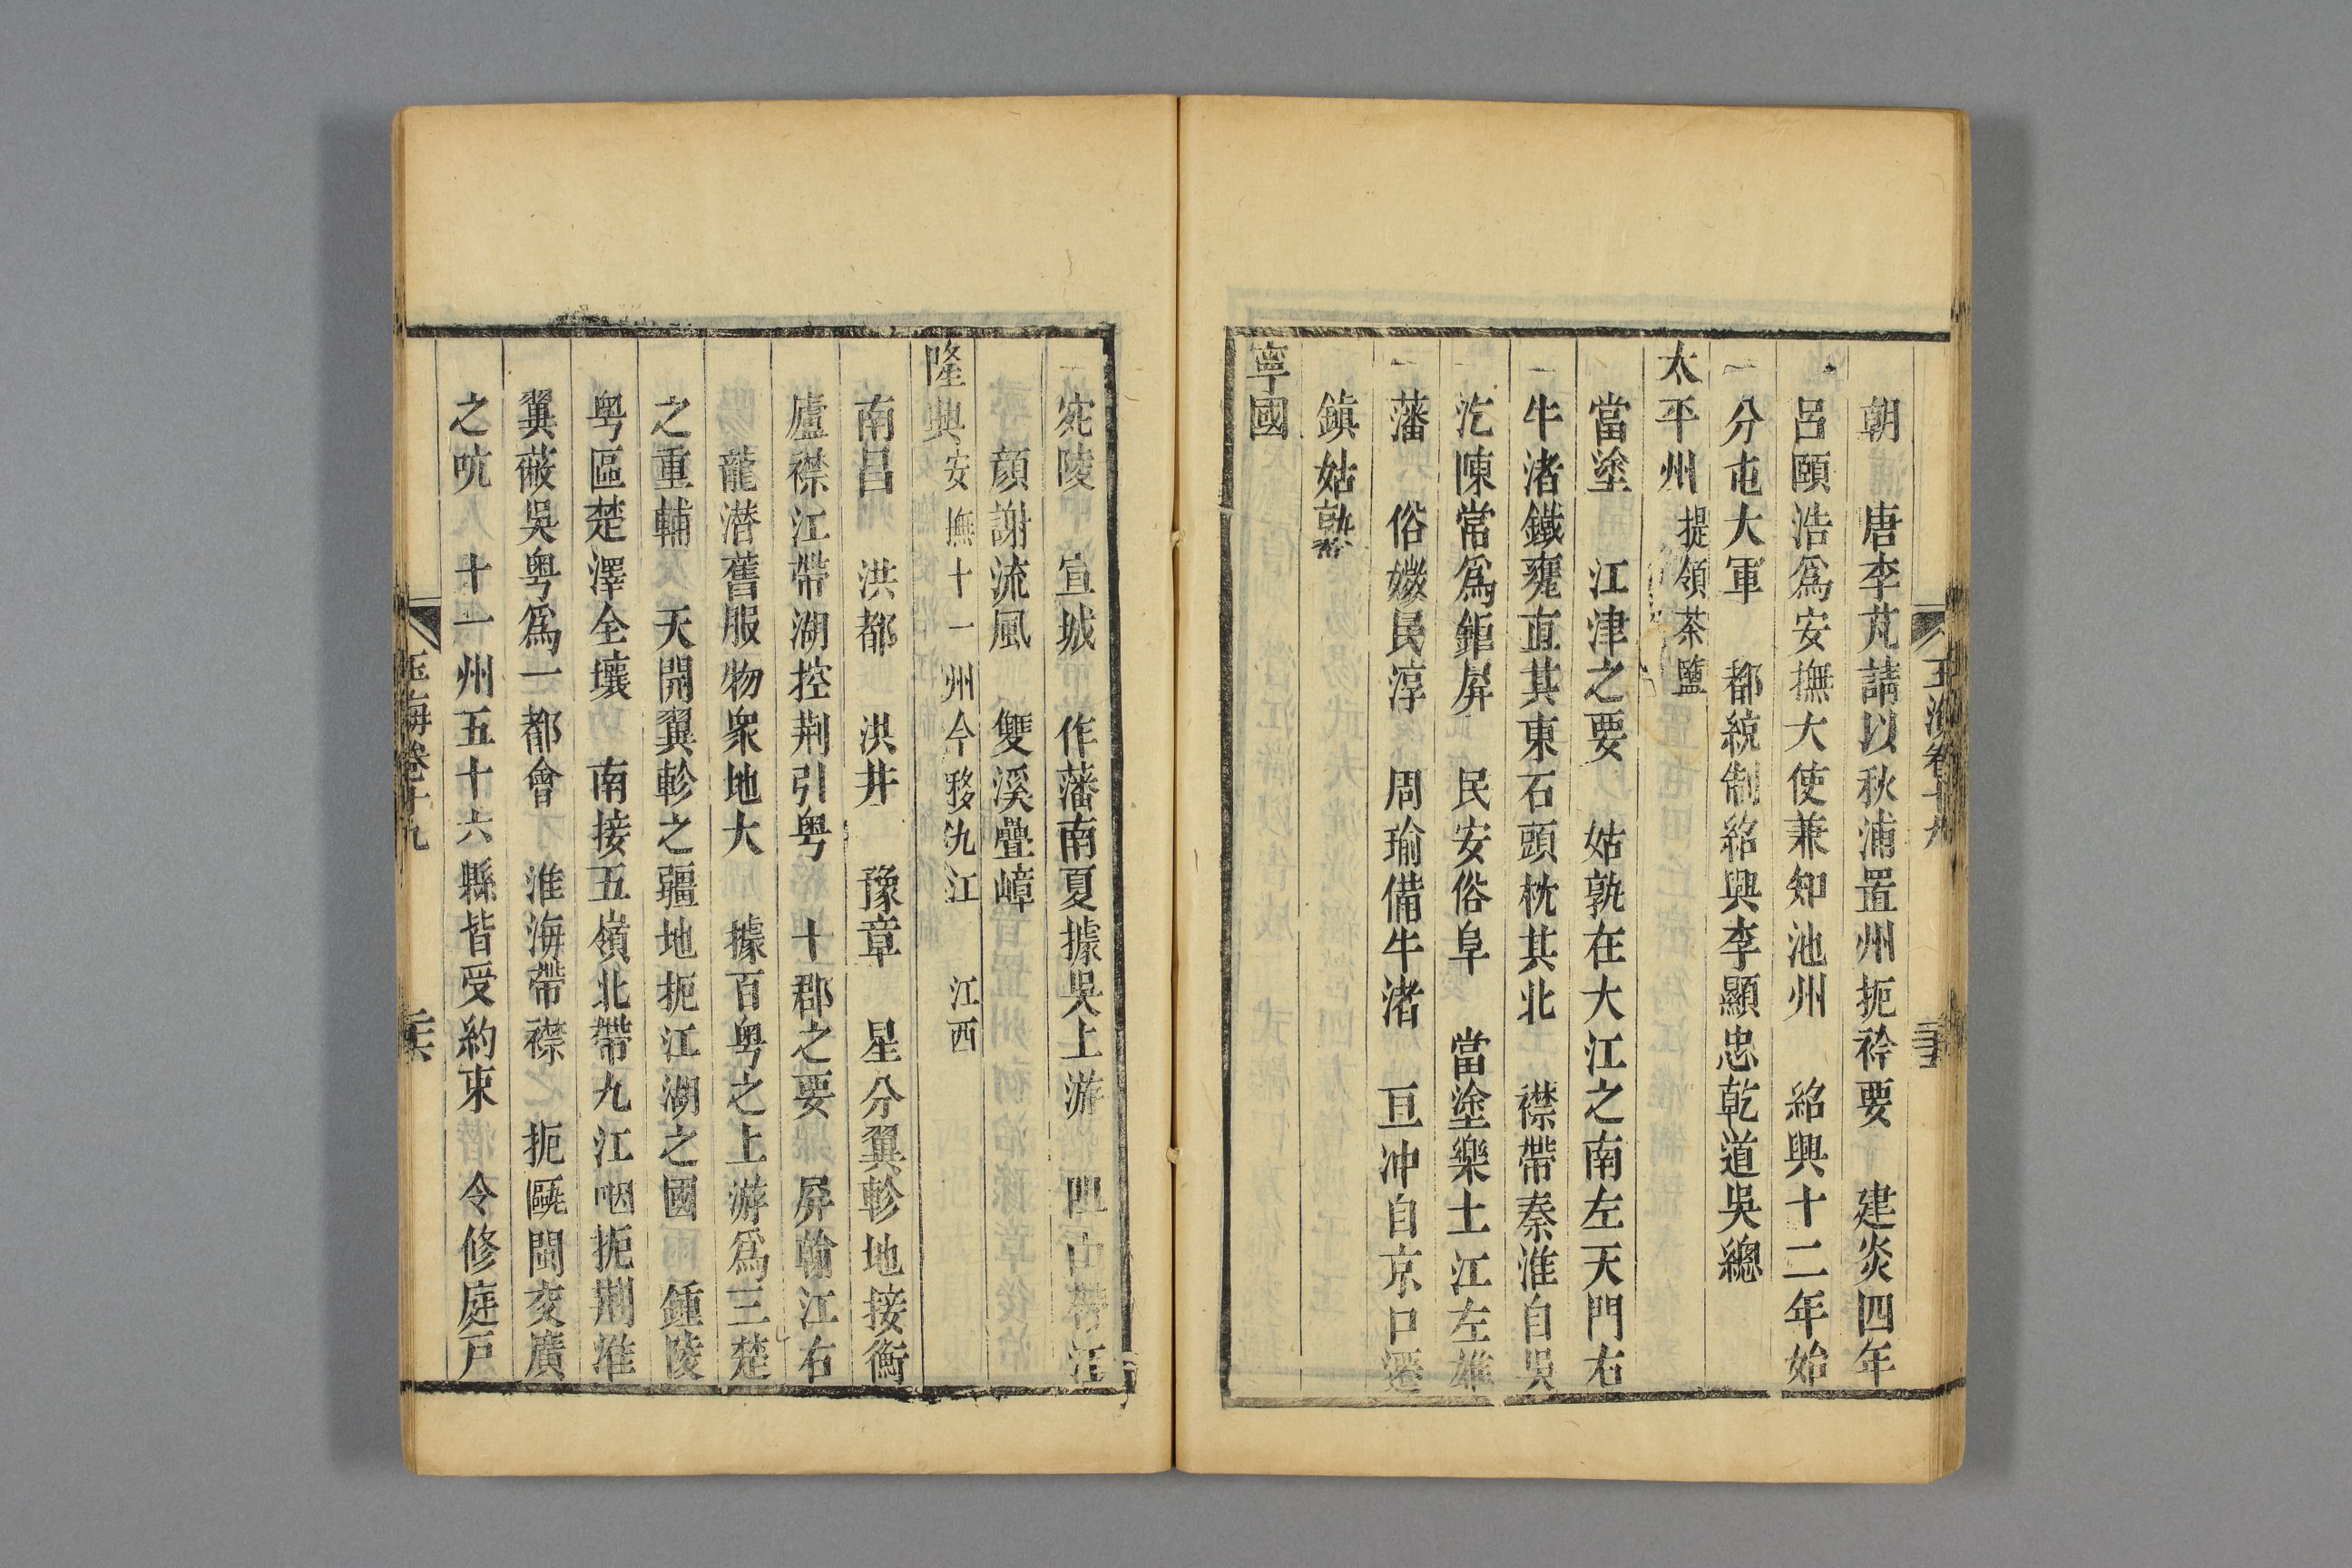 朝　唐李芃請以秋浦置州扼衿要　建炎四年
呂頤浩爲安撫大使兼知池州　紹興十二年始
分屯大軍　都統制紹興李顯忠乾道吳總
太平州提領茶鹽
當塗　江津之要　姑孰在大江之南左天門右
牛渚鐵甕直其東石頭枕其北　襟帶秦淮自吳
汔陳常爲鉅屏　民安俗阜　當塗樂土江左雄
藩　俗媺民淳　周瑜備牛渚　亘冲自京口遷
鎮姑孰
寧國
宛陵　宣城　作藩南夏據吳上游　阻山帶江
顔謝流風　雙溪疊嶂
隆興安撫十一州今移九江　江西
南昌　洪都　洪井　豫章　星分翼軫地接衡
廬襟江帶湖控荆引粤　十郡之要　屏翰江右
龍潜舊服物衆地大　據百粤之上游爲三楚
之重輔　天開翼軫之疆地扼江湖之國　鍾陵
粤區楚澤全壤　南接五嶺北帶九江咽扼荆淮
翼蔽吳粤爲一都會　淮海帶襟　扼甌閩交廣
之吭　十一州五十六縣皆受約束　令修庭戸
玉海卷十九